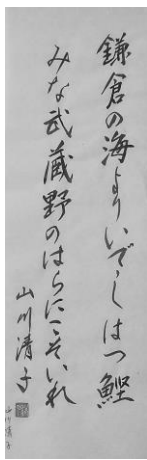 鎌倉の海よりいでしはつ鰹
みな武蔵野のはらにこそいれ
山川清子
山川清子